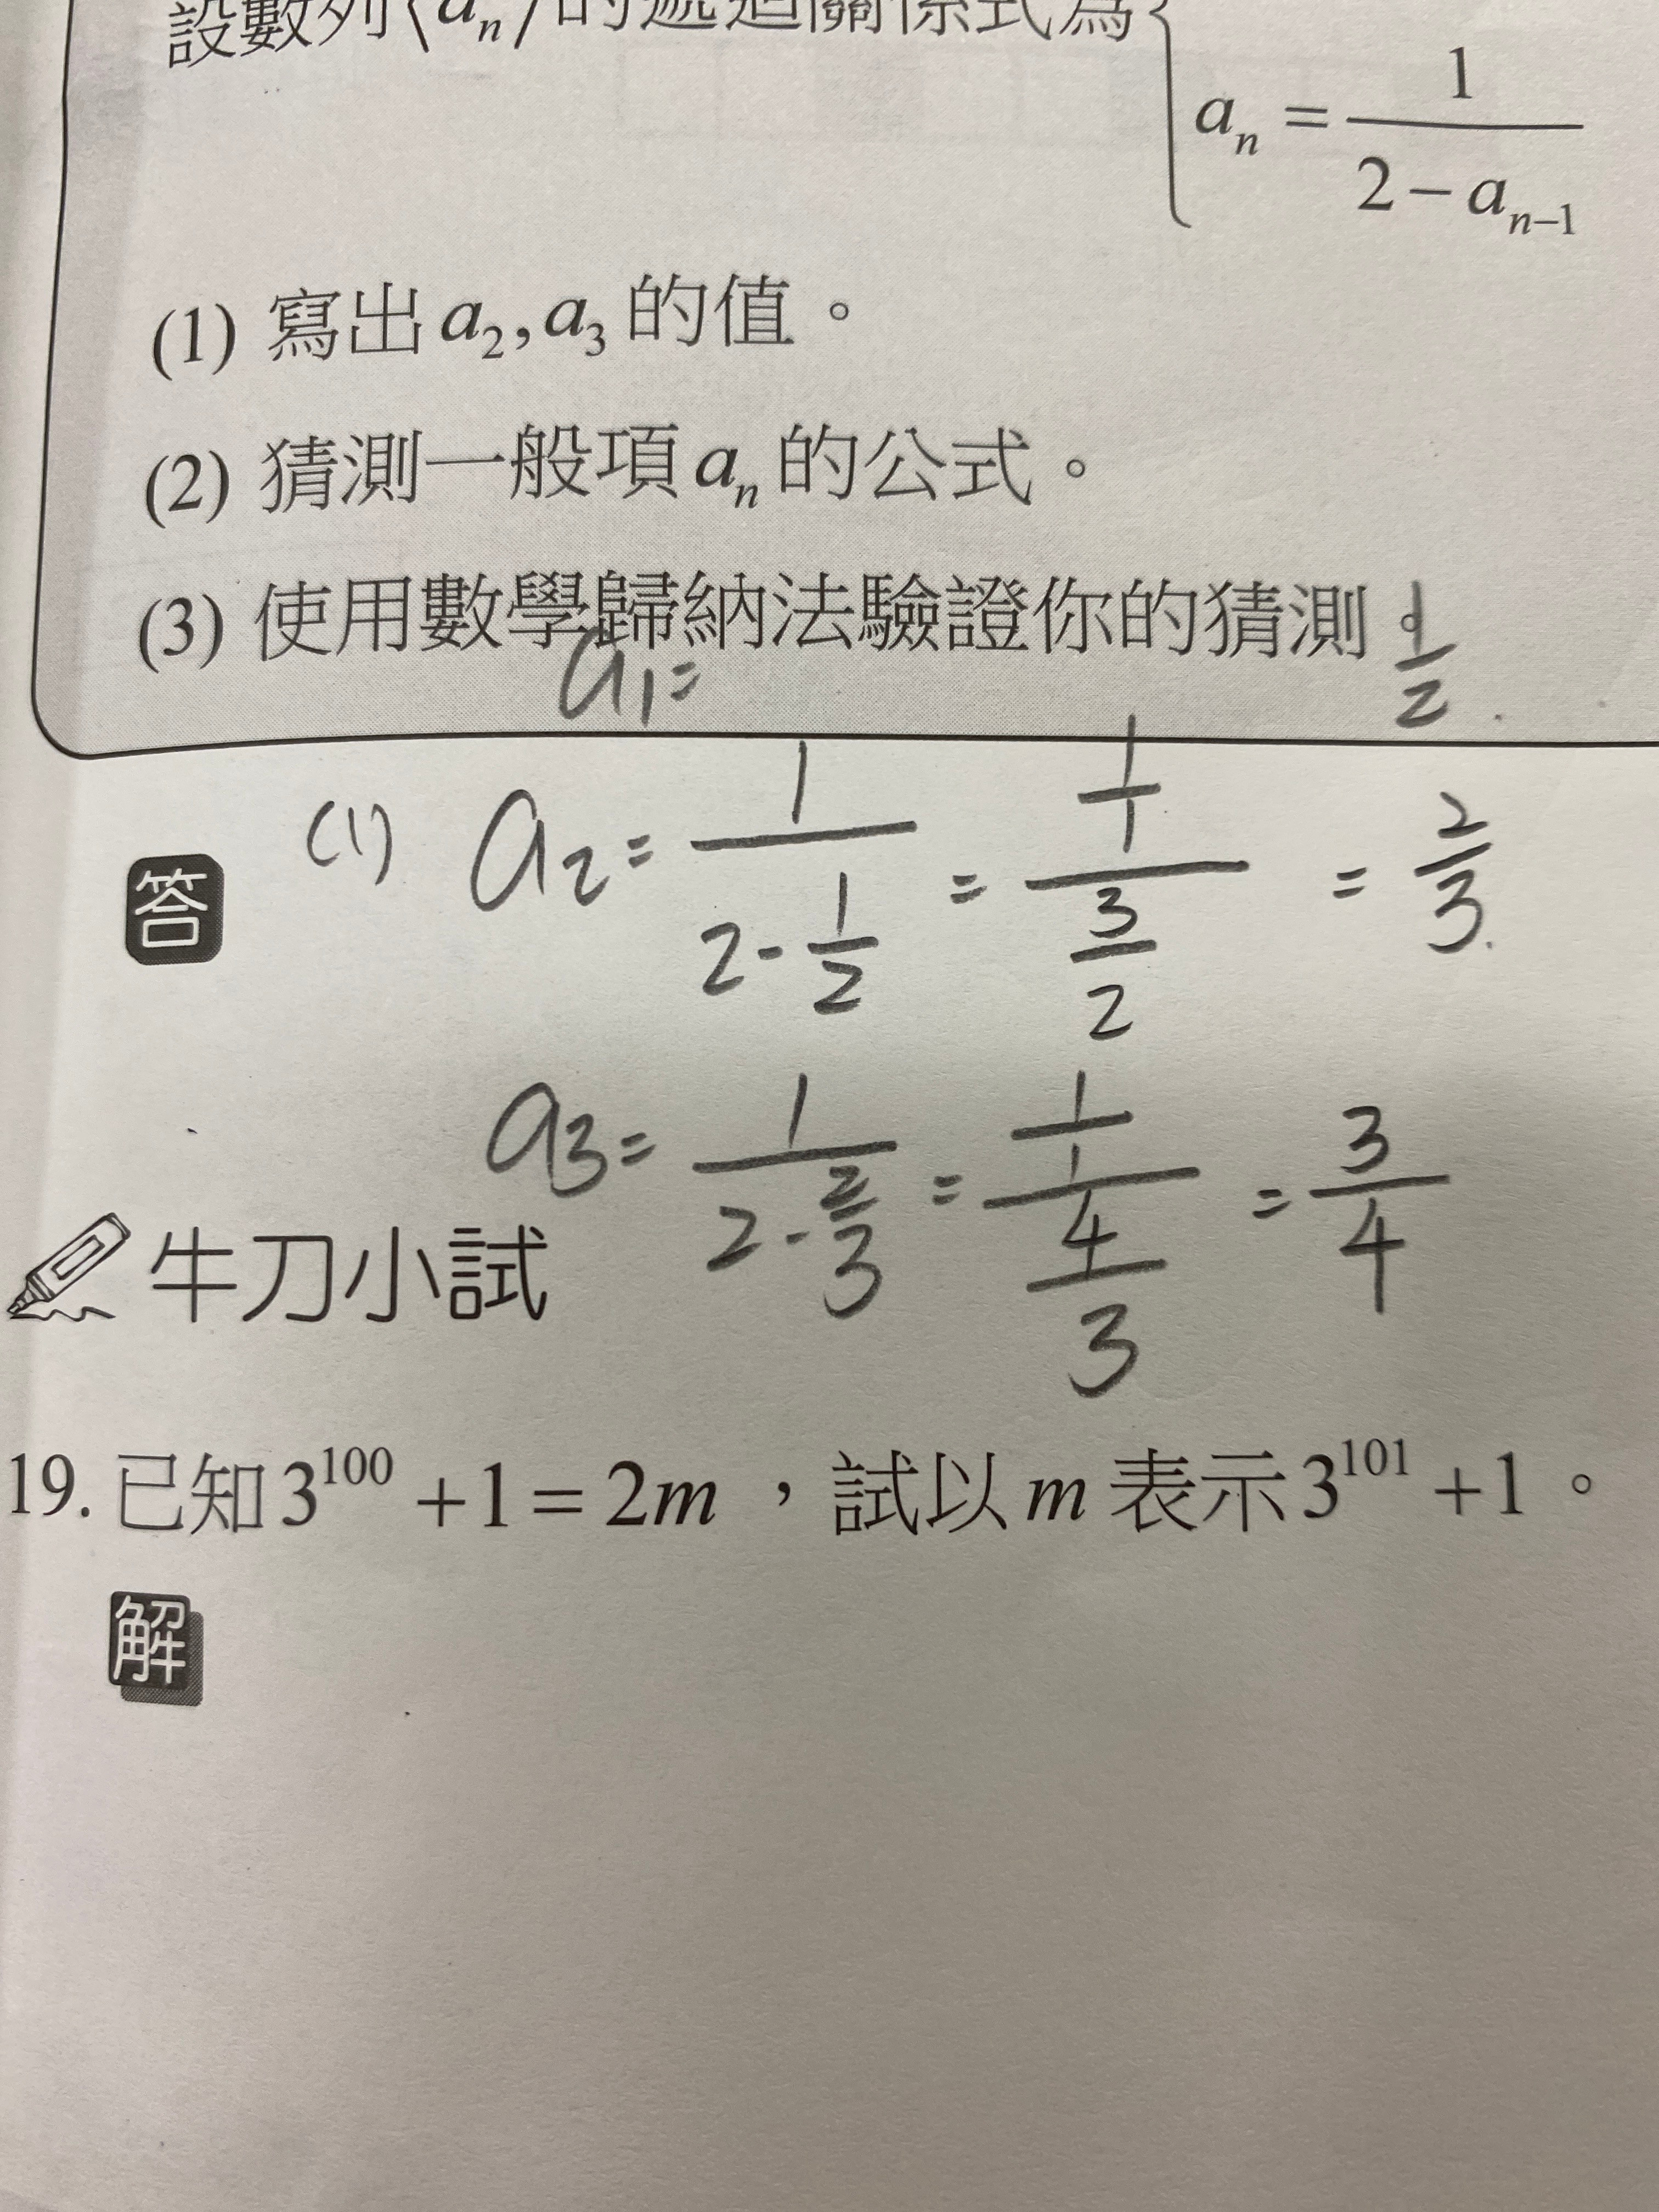 設數列⟨aₙ⟩的遞迴關係式為
aₙ = 1/(2 − aₙ₋₁)
(1) 寫出 a₂, a₃ 的值。
(2) 猜測一般項 aₙ 的公式。
(3) 使用數學歸納法驗證你的猜測。
a₁= 1/2
答 (1) a₂ = 1/(2-1/2) = (1/1)/(3/2) = 2/3
a₃ = 1/(2-2/3) = (1/1)/(4/3) = 3/4
牛刀小試
19. 已知 3¹⁰⁰ + 1 = 2m ，試以 m 表示 3¹⁰¹ + 1。
解